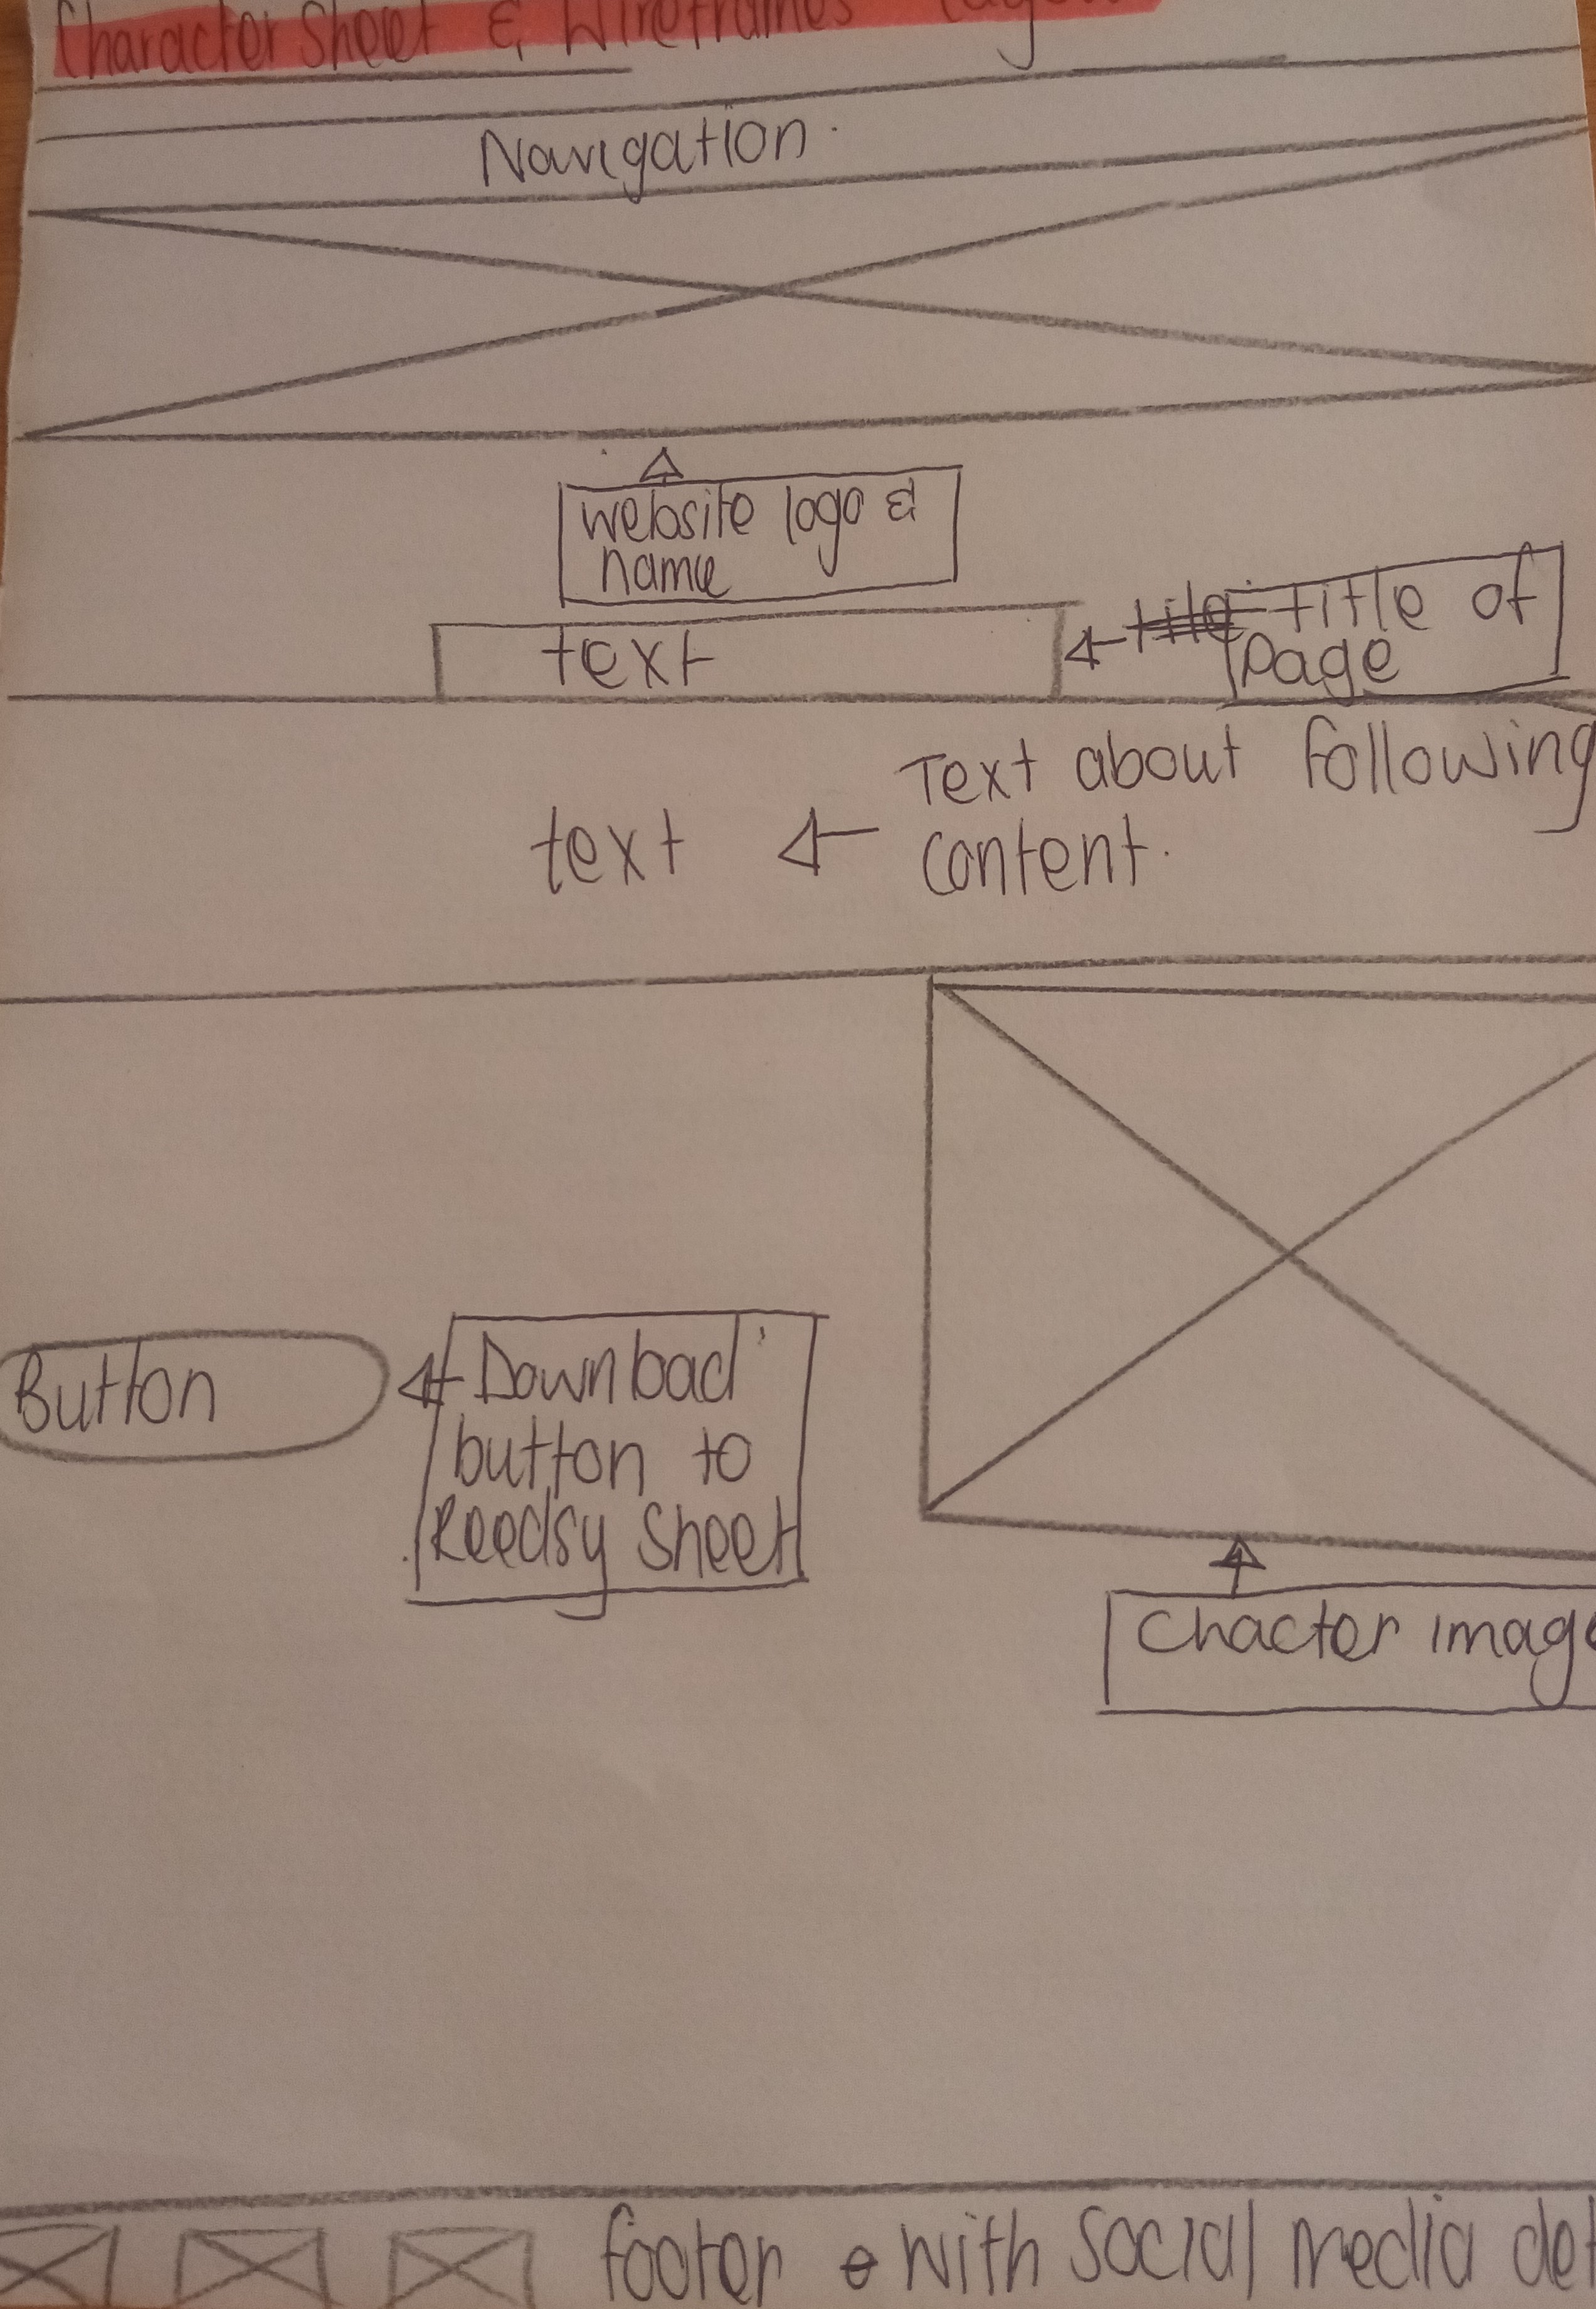 Character Sheet & Wireframes
Navigation.
website logo &
name
text
title of
page
Text about following
text
content.
Button
Download
button to
Reedsy Sheet
Chacter image
footer with Social media det